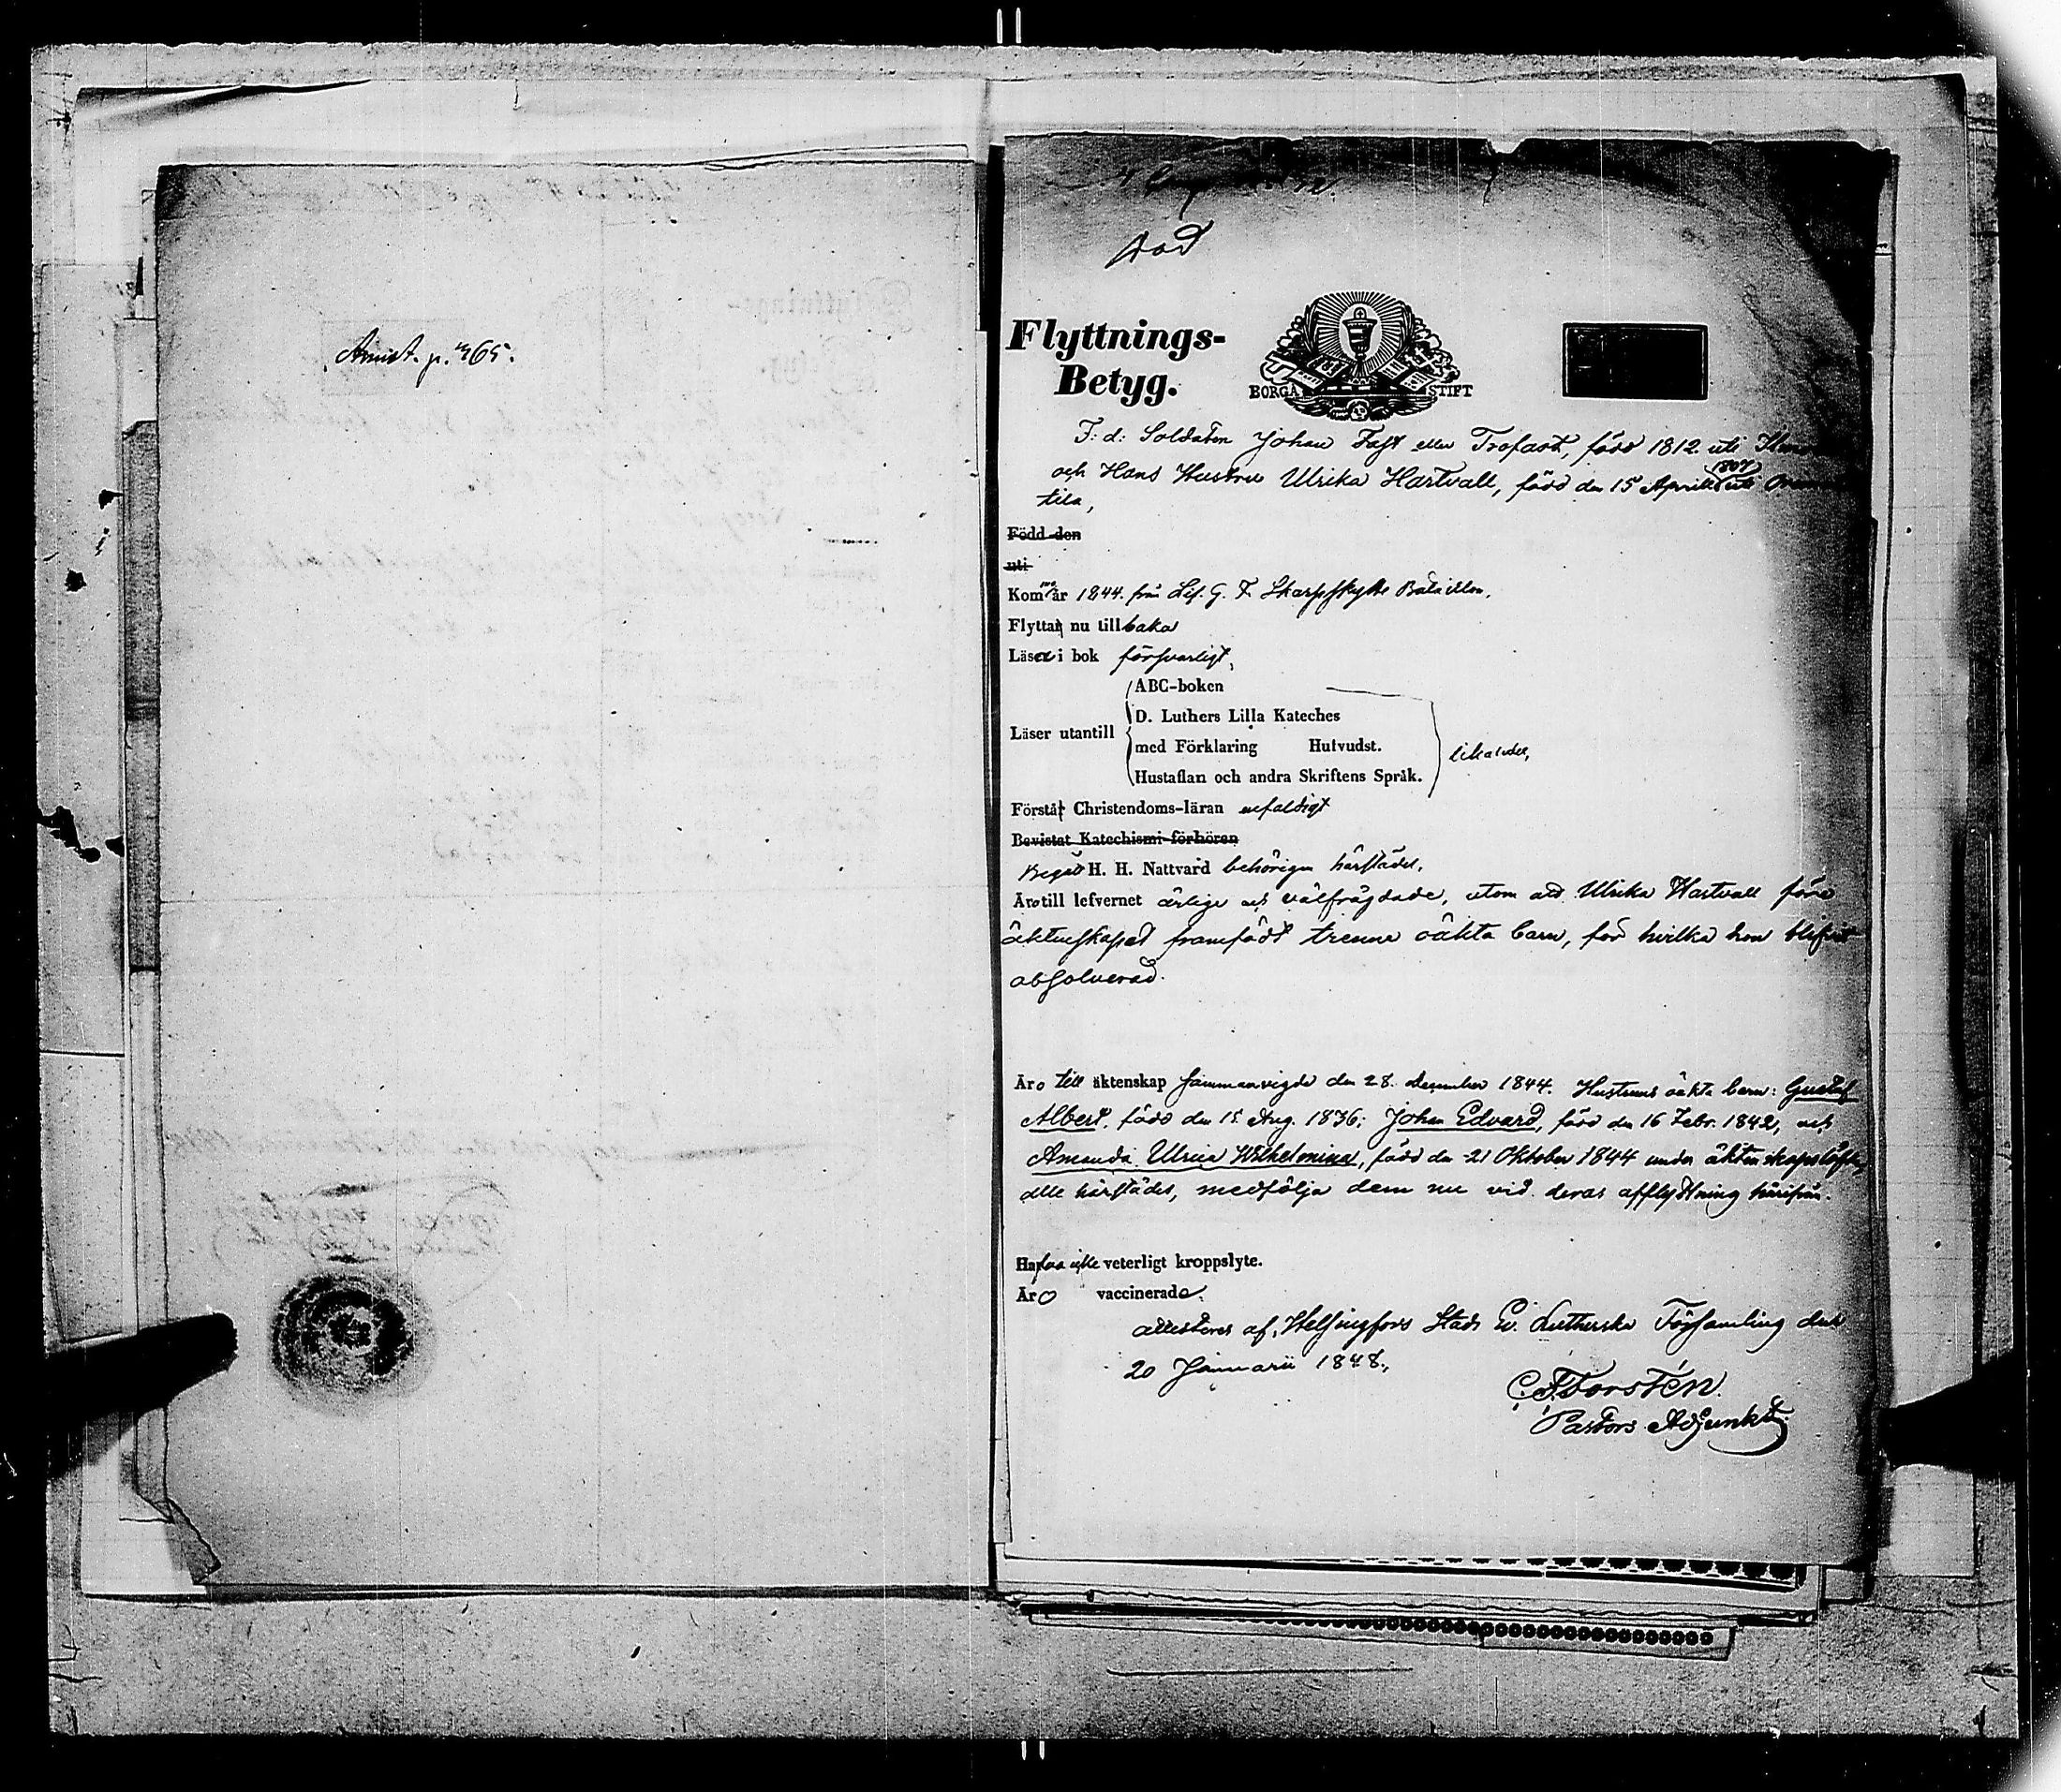 Annot. p. 365.
Flyttnings-
Betyg.
BORGÅ STIFT
F: d: Soldaten Johan Fast eller Trofast, född 1812 uti
och Hans Hustru Ulrika Hartvall, född den 15 April 1807 uti
tila,
Född den
uti
Kommo år 1844. från Lif. G. F. Skarpskytte Bataillon.
Flytta nu till baka
Läsa i bok försvarligt,
ABC-boken
D. Luthers Lilla Kateches
Läser utantill
med Förklaring Hufvudst.
likaledes,
Hustaflan och andra Skriftens Språk.
Förstå Christendoms-läran enfaldigt
Bevistat Katechismi-förhören
Begått H. H. Nattvard behörigen härstädes.
Äro till lefvernet ärlige och välfrägdade, utom att Ulrika Hartvall före
äktenskapet framfödt trenne oäkta barn, för hvilka hon blifvit
absolverad.
Äro till äktenskap sammanvigde den 28. December 1844. Hustruns oäkta barn: Gustaf
Albert, född den 15. Aug. 1836; Johan Edvard, född den 16 Febr. 1842, och
Amanda Ulrica Wilhelmina, född den 21 Oktober 1844 under äktenskapslöfte,
alle härstädes, medfölja dem nu vid deras afflyttning härifrån.
Hafva icke veterligt kroppslyte.
Äro vaccinerade.
attesteras af Helsingfors Stads Ev. Lutherska Församling den
20 Januarii 1848.
C. F. Forstén.
Pastors Adjunkt.